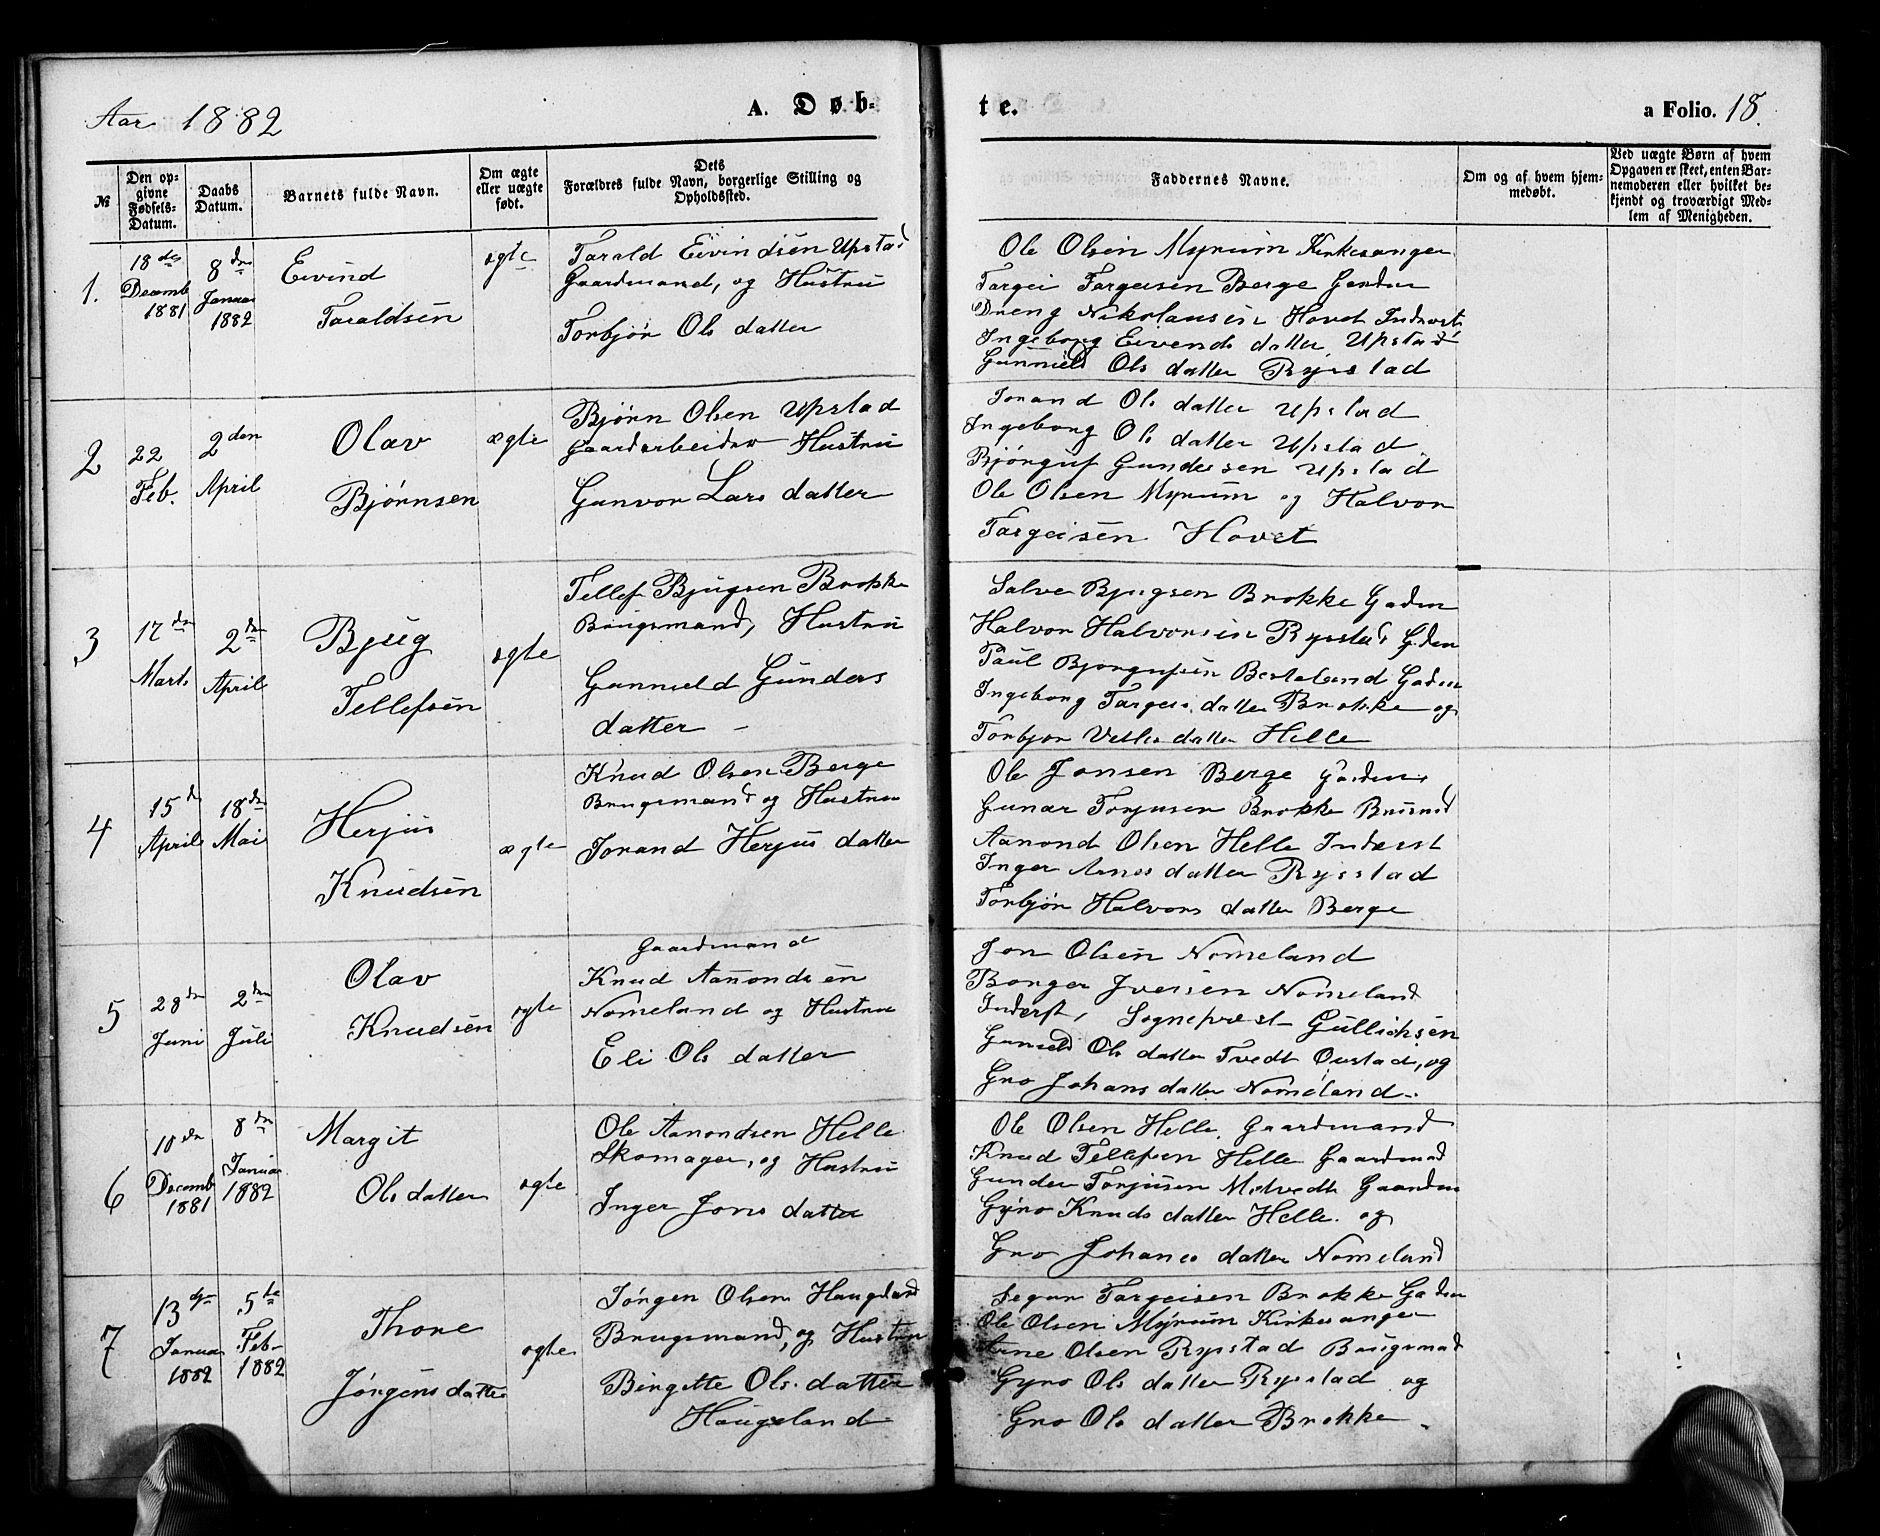 Aar 1882
A. Døb-
te.
a Folio. 18.
№
Den op-
givne
Fødsels-
Datum.
Daabs
Datum.
Barnets fulde Navn.
Om ægte
eller uægte
født.
Dets
Forældres fulde Navn, borgerlige Stilling og
Opholdssted.
Faddernes Navne.
Om og af hvem hjem-
medøbt.
Ved uægte Børn af hvem
Opgaven er skeet, enten Bar-
nemoderen eller hvilket be-
kjendt og troværdigt Med-
lem af Menigheden.
1.
18de
Decemb
1881
8de
Januar
1882
Eivind
Taraldsen
ægte
Tarald Eivindsen Upstad
Gaardmand, og Hustru
Torbjør Ols datter
Ole Olsen Myrum Kirkesanger
Targei Targeisen Berge Gardm
Dreng Nikolausen Hovet Inderst
Ingeborg Eivends datter Upstad
Gunnild Ols datter Rysstad
2
22
Feb.
2den
April
Olav
Bjørnsen
ægte
Bjørn Olsen Upstad
Gaardarbeider Hustru
Gunvor Lars datter
Torand Ols datter Upstad
Ingeborg Ols datter Upstad
Bjørguf Gundersen Upstad
Ole Olsen Myrum og Halvor
Targeisen Hovet
3
17de
Marts
2de
April
Bjug
Tellefsen
ægte
Tellef Bjugsen Brokke
Brugsmand, Hustru
Gunnild Gunders
datter -
Salve Bjugsen Brokke Gadm
Halvor Halvorsen Rysstad Gdm
Paul Bjorgufsen Besteland Gadm
Ingeborg Targeis datter Brokke og
Torbjor Vetles datter Helle
4
15d
April
18de
Mai
Herjus
Knudsen
ægte
Knud Olsen Berge
Brugsmand og Hustru
Torand Herjus datter
Ole Jonsen Berge Gardm
Gunar Torjusen Brokke
Aanond Olsen Helle Inderst
Inger Arnes datter Rysstad
Torbjør Halvors datter Berge
5
28de
Juni
2de
Juli
Olav
Knudsen
ægte
Gaardmand
Knud Aanondsen
Nomeland og Hustru
Eli Ols datter
Jon Olsen Nomeland
Bonger Iversen Nomeland
Inderst, Sognepræst Gullichsen
Gunild Ols datter Tvedt Oustad, og
Gro Johans datter Nomeland.
6
10de
Decemb
1881
8de
Januar
1882
Margit
Ols datter
ægte
Ole Aanondsen Helle
Skomager, og Hustru
Inger Jons datter
Ole Olsen Helle Gaardmand
Knud Tellefsen Helle Gaardmad
Gunder Torjusen Gaardm
Gyro Knuds datter Helle og
Gro Johanes datter Nomeland
7
13de
Januar
1882
5te
Feb-
1882
Thone
Jørgens datter
ægte
Jørgen Olsen Haugsland
Brugsmand, og Hustru
Birgitte Ols. datter
Haugsland
Targeisen Brokke Gadm
Ole Olsen Myrum Kirkesanger
Arne Olsen Rysstad Brugsmad
Gyro Ols datter Rysstad og
Gro Ols datter Brokke.